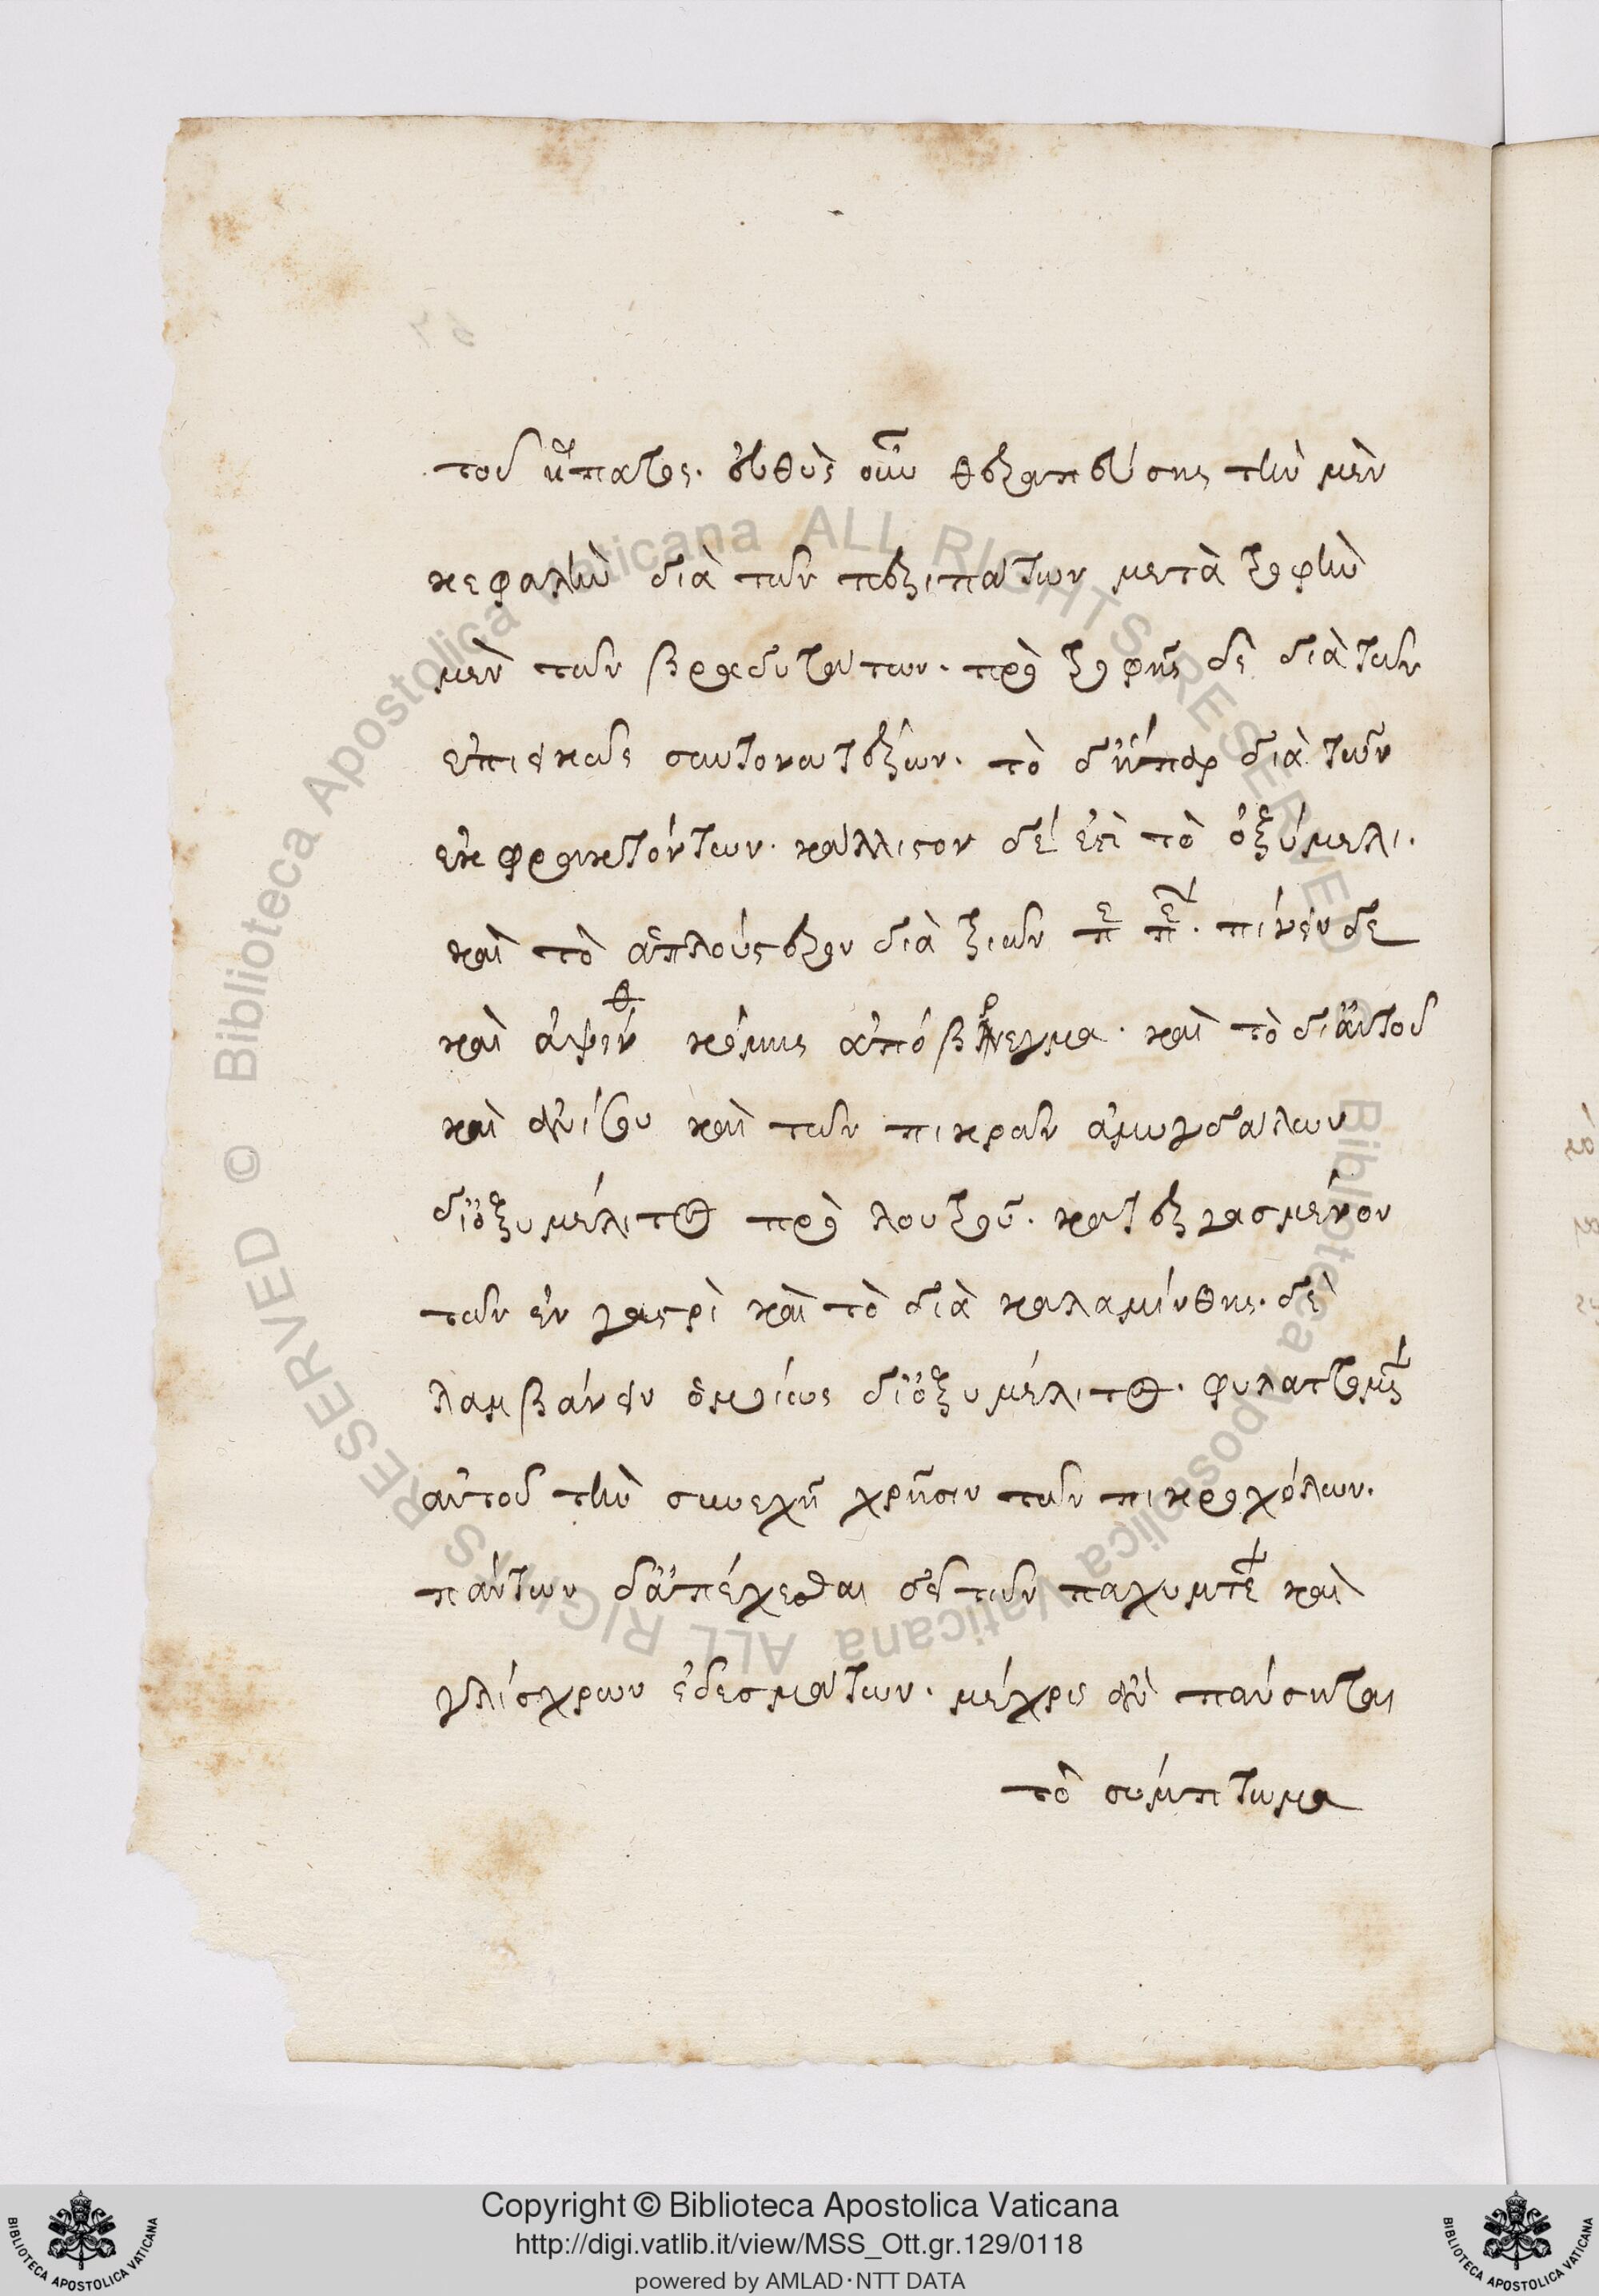 τοῦ ἥπατος. εὐθὺς οὖν θεραπεύσης τὴν μὲν
κεφαλὴν διὰ τῶν περιπάτων μετὰ τροφὴν
μὲν τῶν βραδυτάτων. πρὸ τροφῆς δὲ διὰ τῶν
ἐπιεικῶς συντονωτέρων. τὸ δ' ἧπαρ διὰ τῶν
ἐκφρακτόντων. κάλλιστον δέ ἐστι τὸ ὀξύμελι.
καὶ τὸ ἁπλούστερον διὰ τριῶν πίνειν δε
καὶ ἀψινθ κόμης ἀπόβρεγμα. καὶ τὸ δι' αὐτοῦ
καὶ ἀνίσου καὶ τῶν πικρῶν ἀμυγδάλων
δι' ὀξυμέλιτος πρὸ λουτροῦ. κατειργασμένον
τῶν ἐν γαστρὶ καὶ τὸ διὰ καλαμίνθης. δεῖ
λαμβάνειν ὁμοίως δι' ὀξυμέλιτος. φυλαττομένους
αὐτοῦ τὴν συνεχῆ χρῆσιν τῶν πικροχόλων.
πάντων δ' ἀπέχεσθαι δεῖ τῶν παχυμερῶν καὶ
γλίσχρων ἐδεσμάτων. μέχρις ἂν παύσηται
τὸ σύμπτωμα
Copyright © Biblioteca Apostolica Vaticana
http://digi.vatlib.it/view/MSS_Ott.gr.129/0118
powered by AMLAD·NTT DATA
BIBLIOTECA APOSTOLICA VATICANA
BIBLIOTECA APOSTOLICA VATICANA
© Biblioteca Apostolica Vaticana ALL RIGHTS RESERVED
© Biblioteca Apostolica Vaticana ALL RIGHTS RESERVED